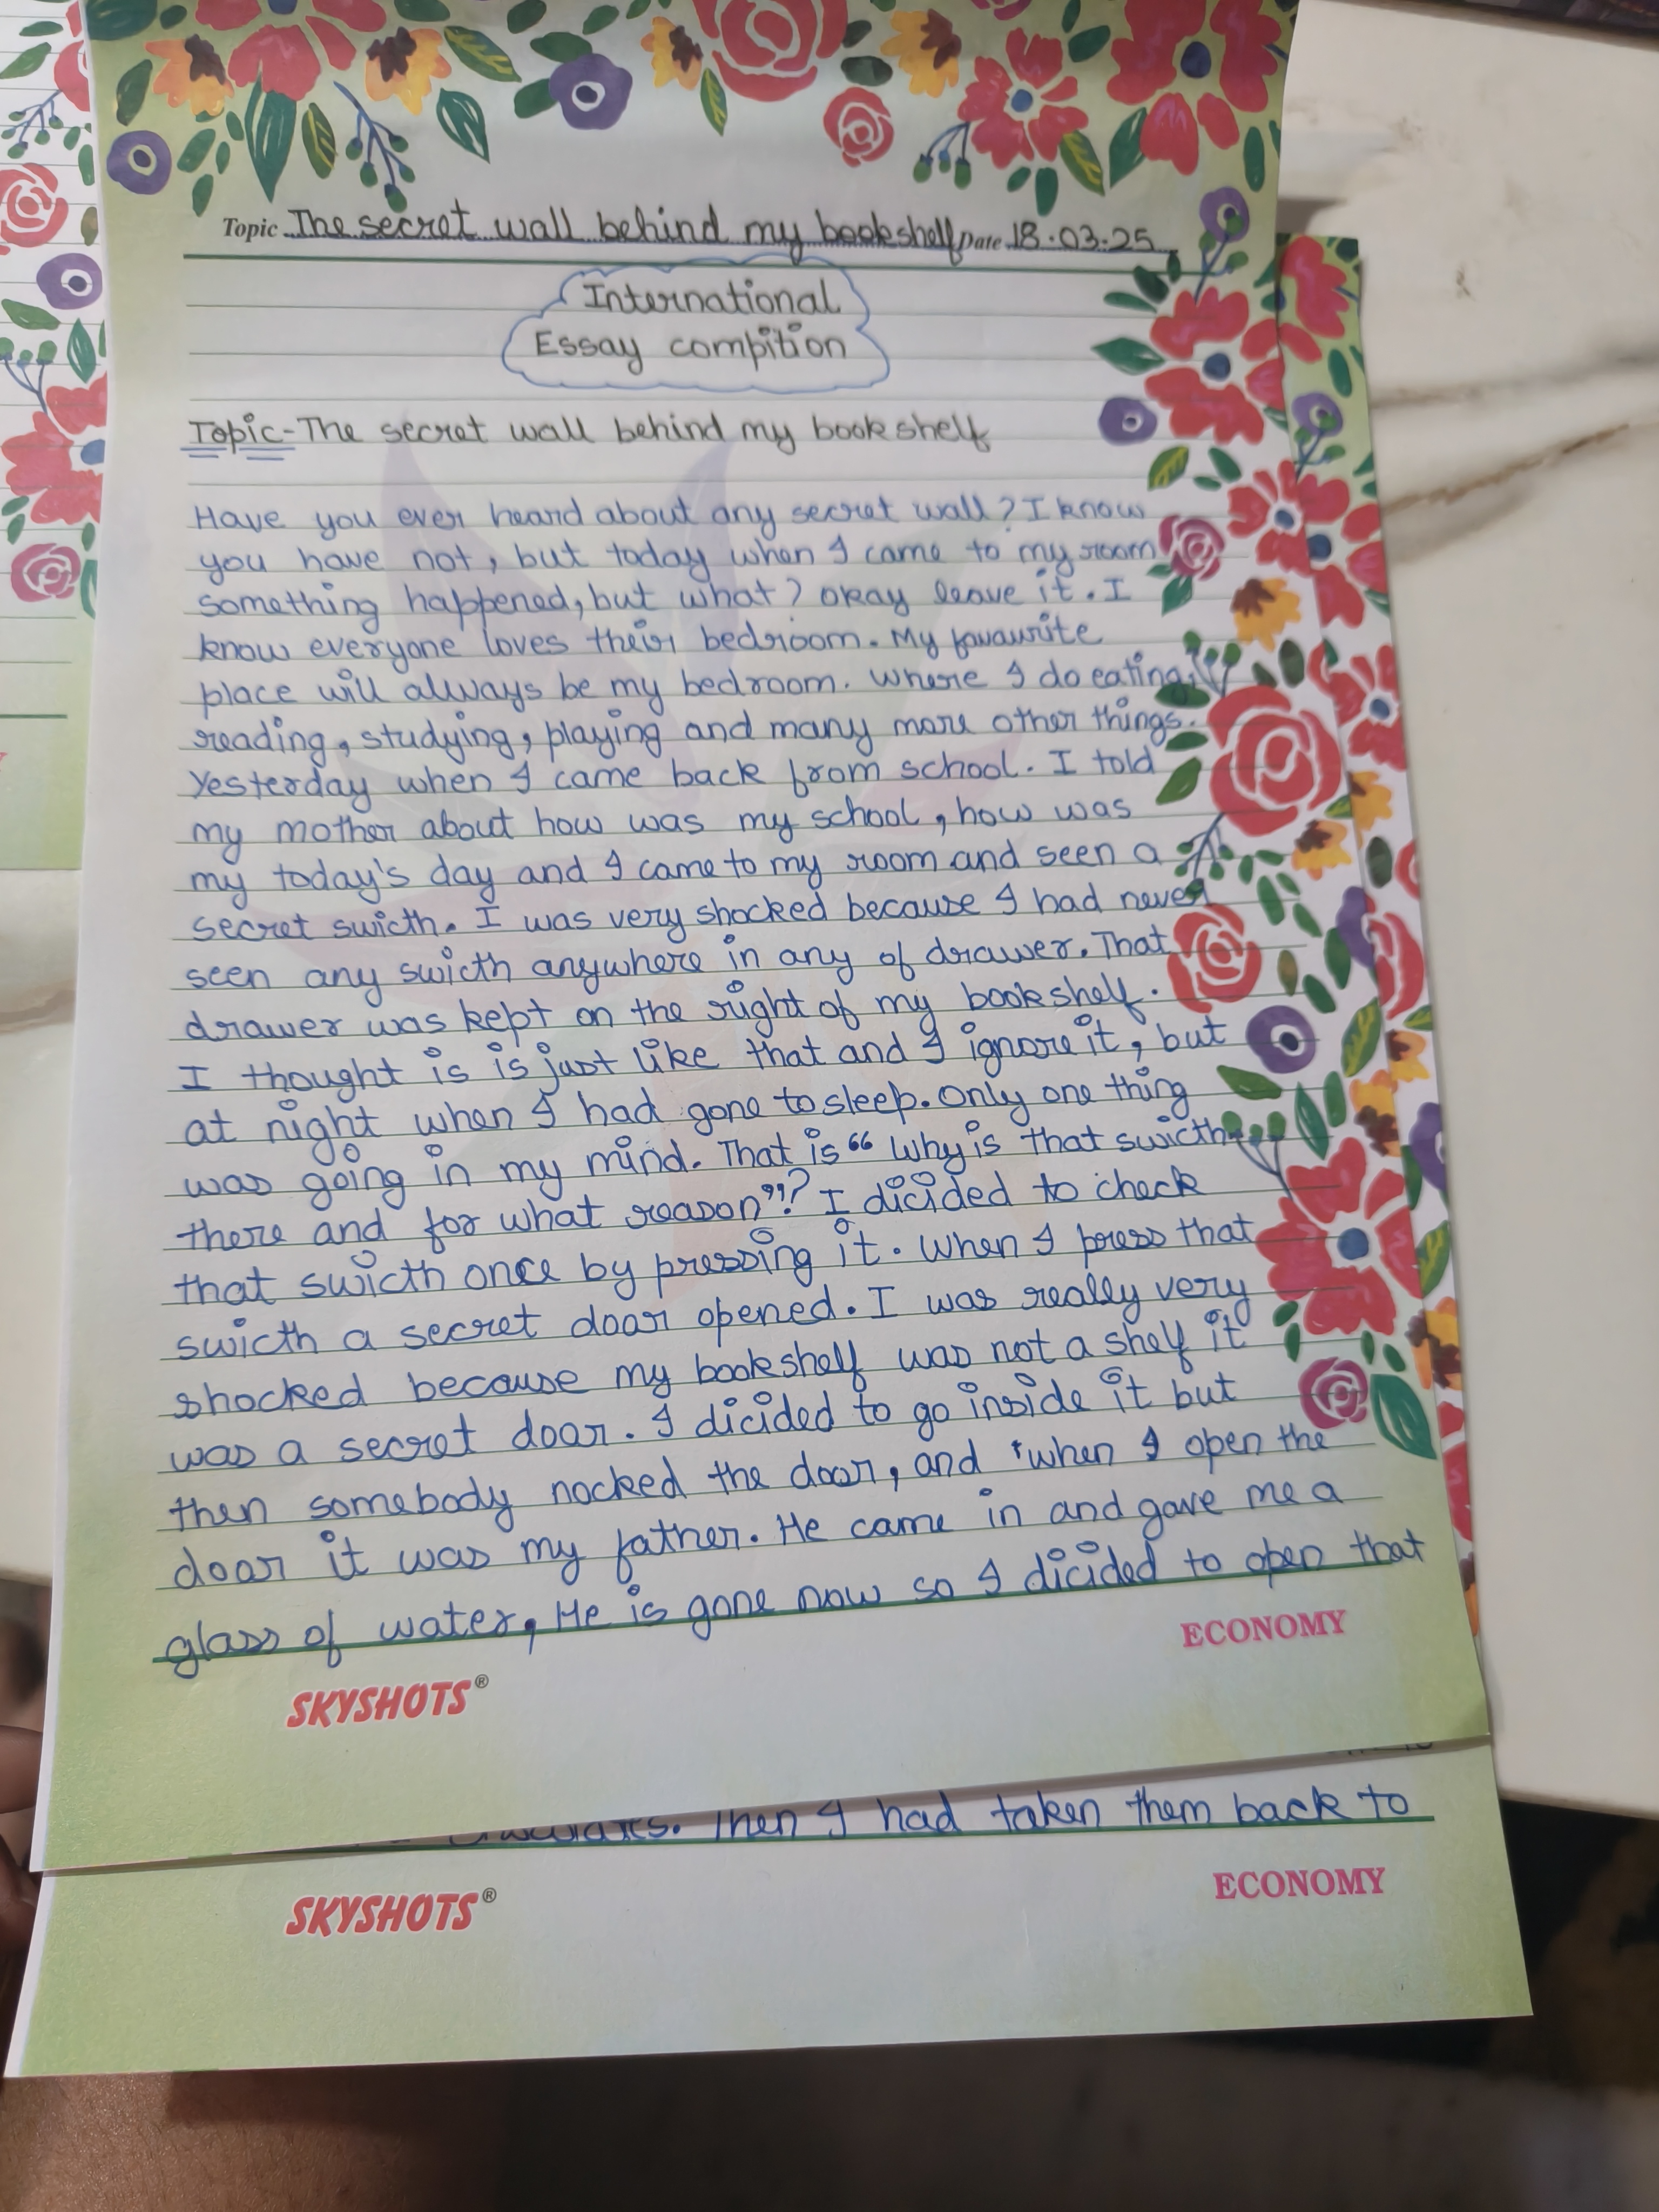 Topic The secret wall behind my bookshelf Date 18.03.25
International
Essay compition
Topic-The secret wall behind my bookshelf
Have you ever heard about any secret wall? I know
you have not, but today when I came to my room
something happened, but what? okay leave it. I
know everyone loves their bedroom. My favaurite
place will always be my bedroom. where I do eating,
reading, studying, playing and many more other things.
Yesterday when I came back from school. I told
my mother about how was my school, how was
my today's day and I came to my room and seen a
secret swicth. I was very shocked because I had never
seen any swicth anywhere in any of drawer. That
drawer was kept on the right of my bookshelf.
I thought is is just like that and I ignore it, but
at night when I had gone to sleep. Only one thing
was going in my mind. That is “ Why is that swicth
there and for what reason”? I dicided to check
that swicth once by pressing it. When I press that
swicth a secret door opened. I was really very
shocked because my bookshelf was not a shelf it
was a secret door. I dicided to go inside it but
then somebody nocked the door, and when I open the
door it was my father. He came in and gave me a
glass of water, He is gone now so I dicided to open that
ECONOMY
SKYSHOTS®
Then I had taken them back to
ECONOMY
SKYSHOTS®